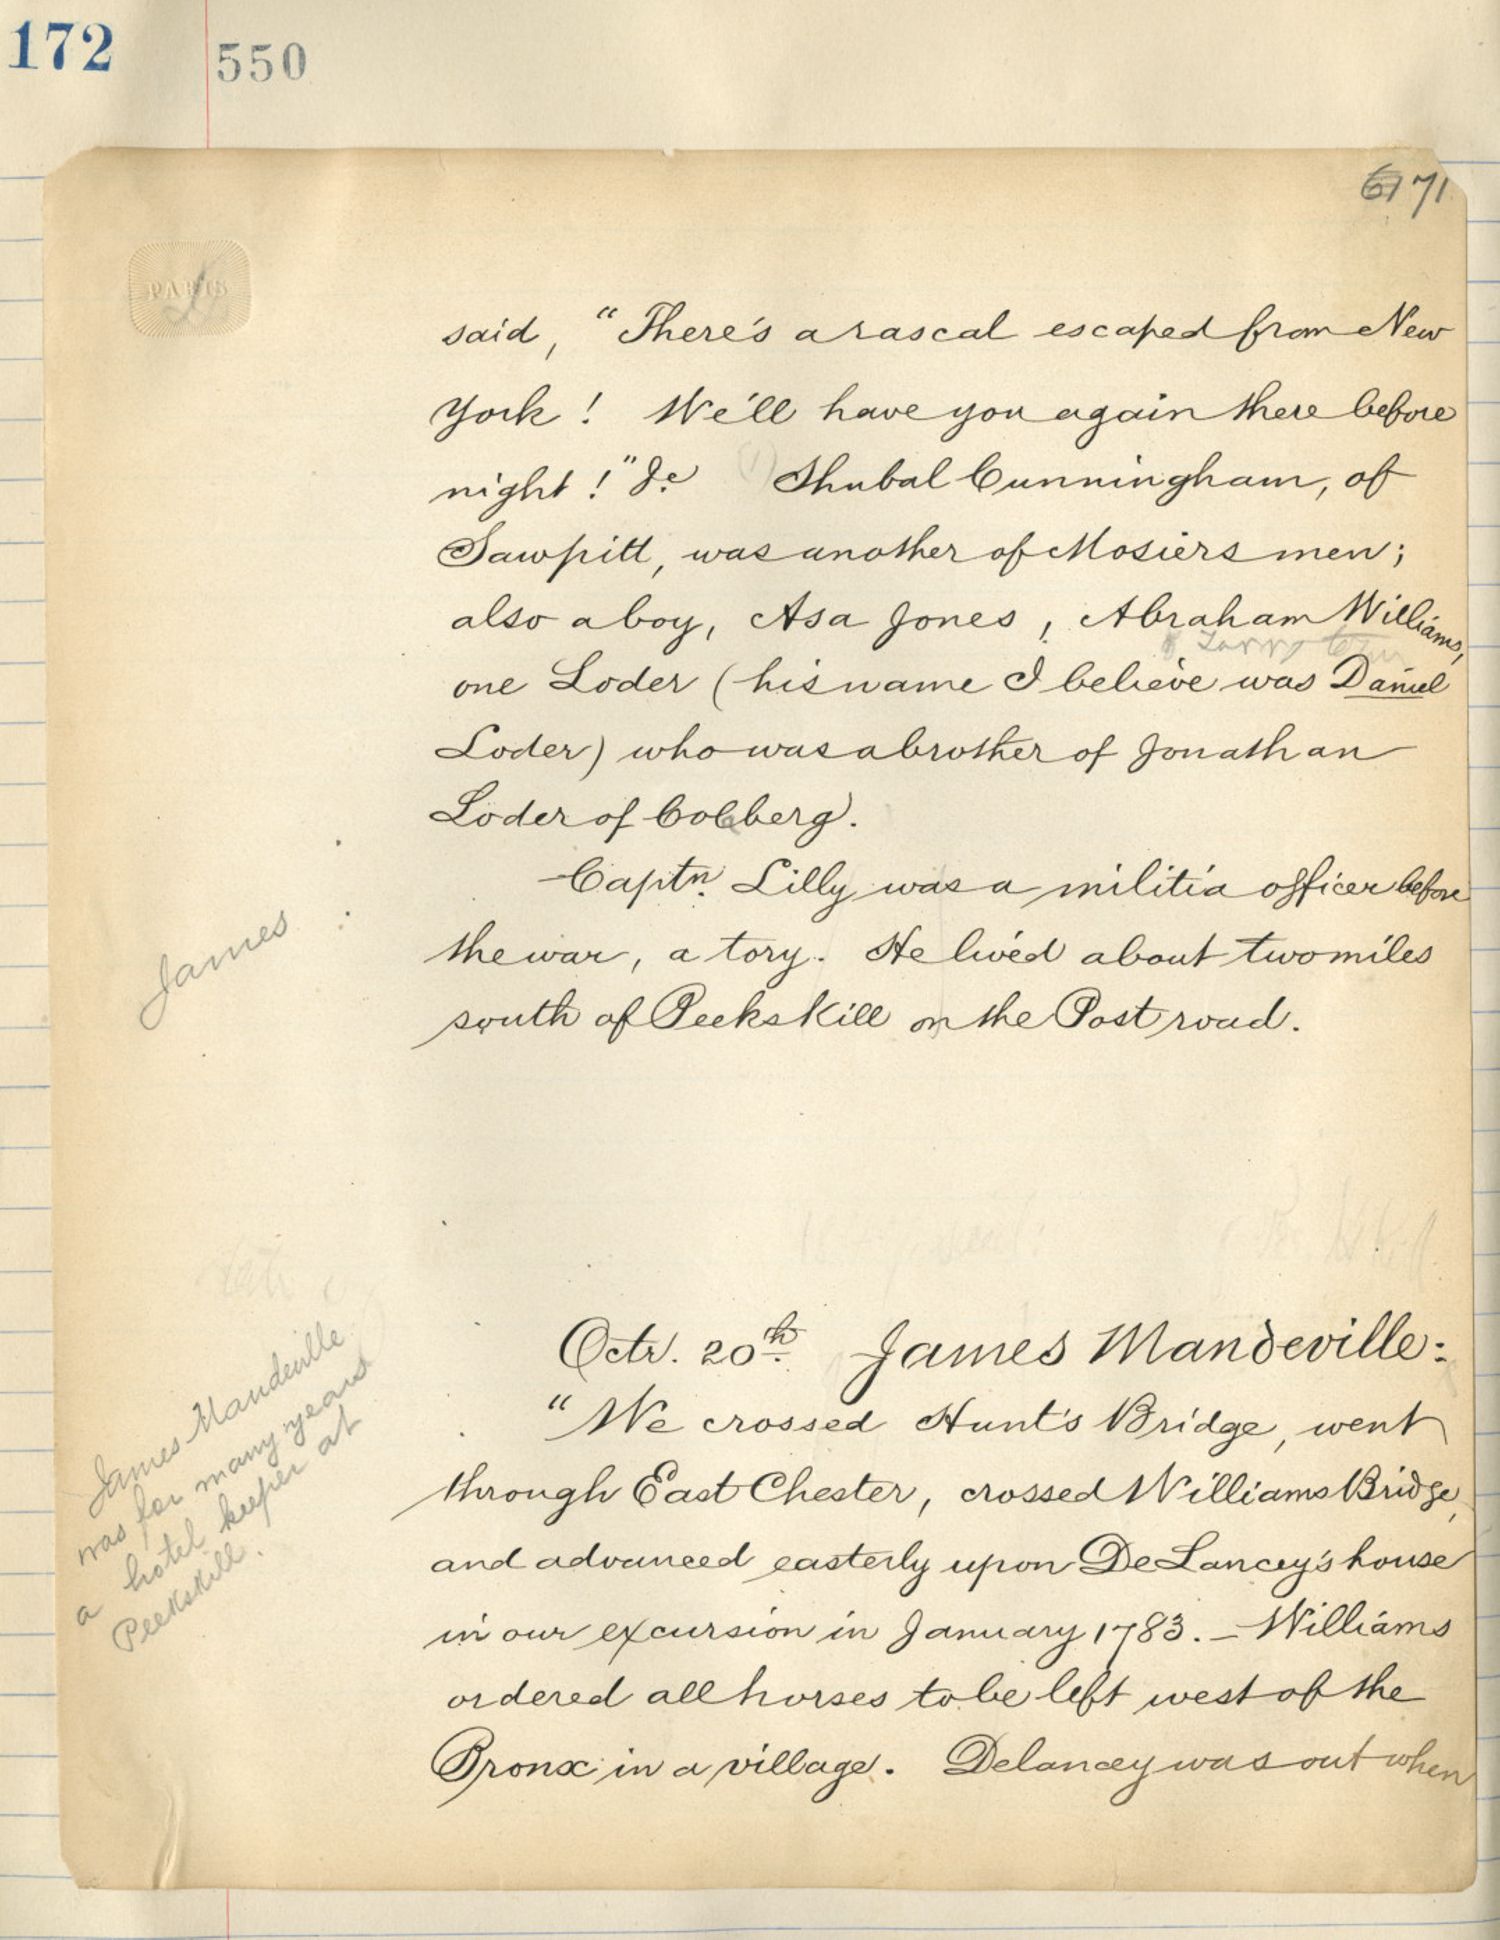 172 550
71
PARIS
said, "There's a rascal escaped from New
York! We'll have you again there before
night!" &c (1) Shubal Cunningham, of
Sawpitt, was another of Mosiers men;
also a boy, Asa Jones, Abraham Williams,
one Loder (his name I believe was Daniel
Loder) who was a brother of Jonathan
Loder of Cobberg.
Captn. Lilly was a militia officer before
the war, a tory. He lived about two miles
south of Peekskill on the Post road.
James
Octr. 20th. James Mandeville:
"We crossed Hunt's Bridge, went
through East Chester, crossed Williams Bridge,
and advanced easterly upon DeLancey's house
in our excursion in January 1783. – Williams
ordered all horses to be left west of the
Bronx in a village. Delancey was out when
James Mandeville
was for many years
a hotel keeper at
Peekskill.